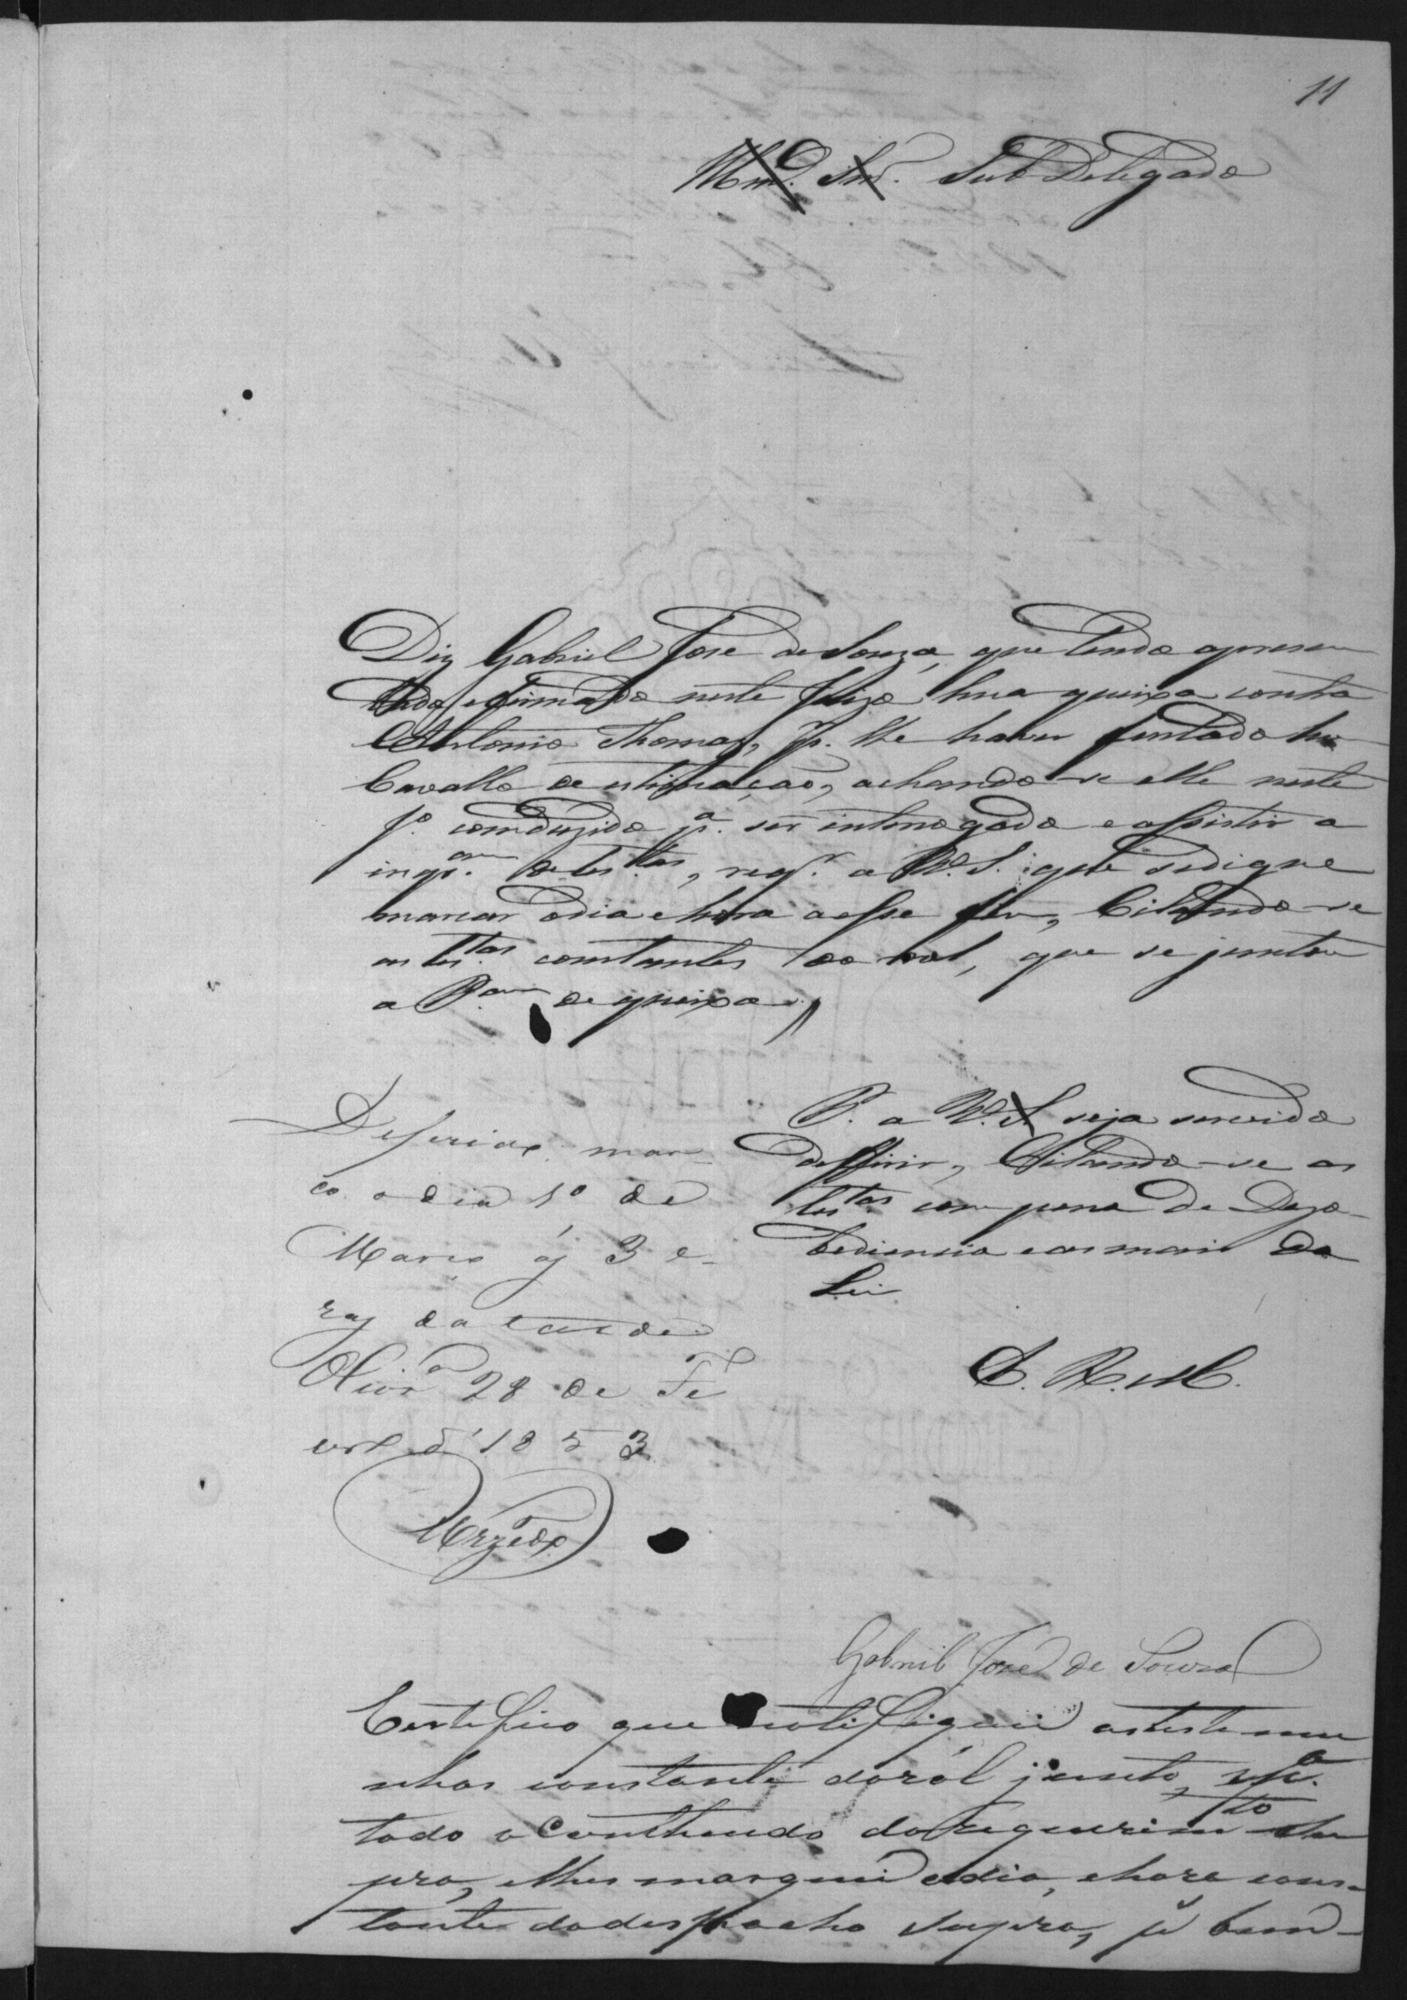 11
Illmo. Snr. Sub Delegado
Diz Gabriel Jose de Souza, que tendo apresen
tado, e firmado neste Juizo hua queixa contra
Antonio Thomas, Pr. lhe haver furtado hu
Cavallo de estimação, achando-se elle neste
Jo. comduzido pa. ser interrogado e assistir a
inqam. de testas, reqr. a V. S. que se digne
marcar o dia e hora a esse fim, Citando-se
as testas. constantes do rol, que se juntou
a Pam de queixa
P. a V. S. seja servido
defferir, Citando-se as
testas. com pena de Dezo-
bediencia e as mais da
Lei.
E. R. M.
Deferido. mar-
co o dia 1º de
Março ás 3 o-
ras da tarde
Olivra 28 de Fe
vro d' 1853
Gabriil José de Souza
Certefico que notifiquei as testemu
nhas constante do ról junto,
todo o Contheudo do requerimto su
pra, e lhes marquei o dia, e hora cons-
tante do despacho supra,